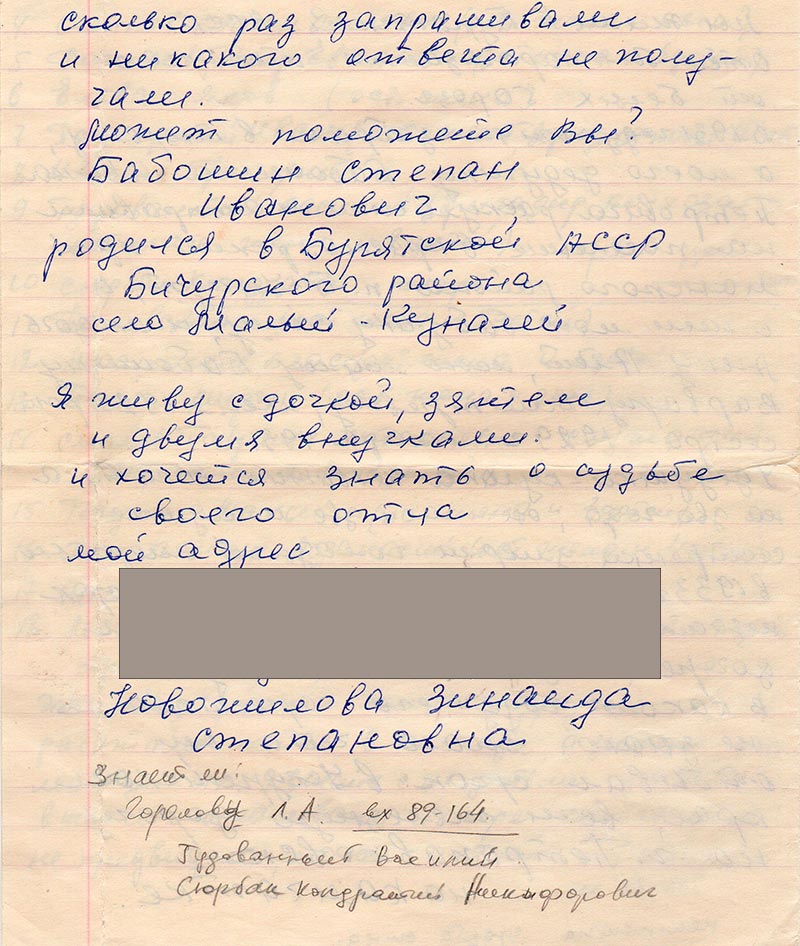 сколько раз запрашивали
и никакого ответа не полу-
чали.
Может поможете Вы?
Бабошин Степан
Иванович
родился в Бурятской АССР
Бичурского района
село Малый-Куналей
Я живу с дочкой, зятем
и двумя внучками.
и хочется знать о судьбе
своего отца
мой адрес
Новожилова Зинаида
Степановна
Знает ли:
Горелову Л.А. вх 89-164.
Гудованный Василий.
Сюрбак Кондратий Никифорович